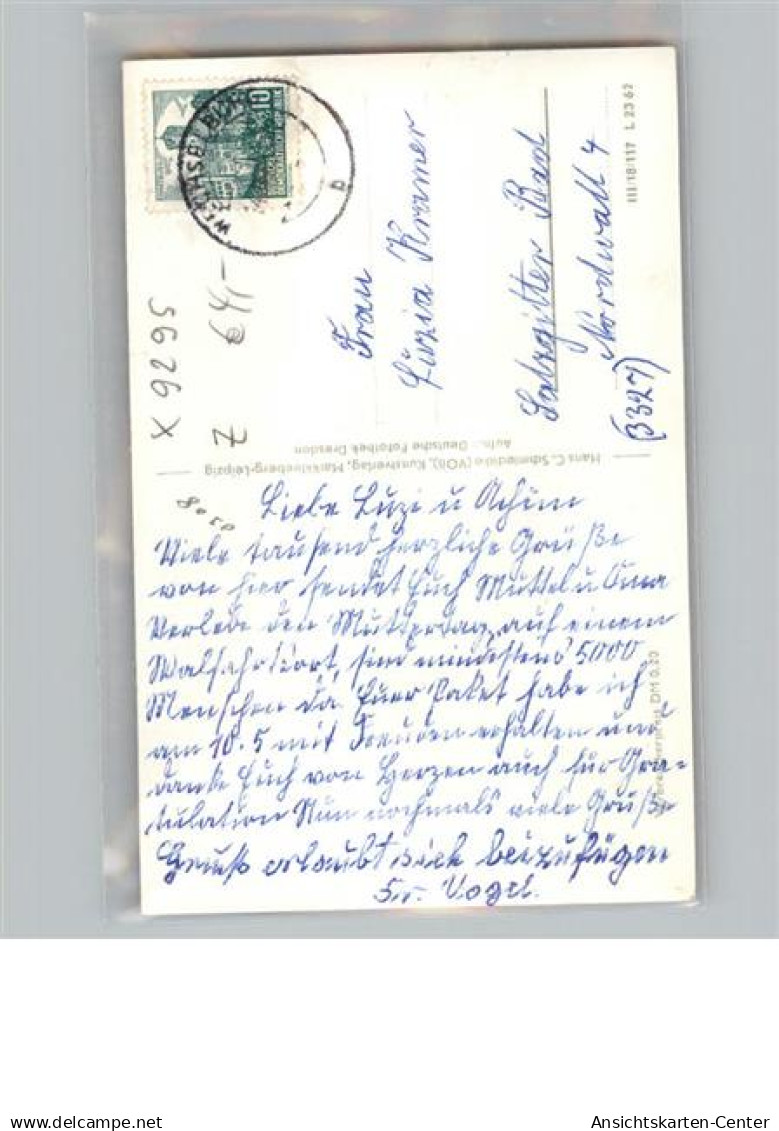 10
Frau
Luzia Kramer
Salzgitter Bad
Nordwall 4
(3327)
III/18/117 L 23 62
X 9295
Z € 4,-
8050
Hans C. Schmiedicke (VOB), Kunstverlag, Markkleeberg-Leipzig
Aufn.: Deutsche Fotothek Dresden
DM 0,20
Liebe Luzi u Achim
Viele tausend herzliche Grüße
von hier sendet Euch Muttel u Oma
Verlebe den Muttertag auf einem
Walfahrtsort, sind mindestens 5000
Menschen da Euer Paket habe ich
am 10.5 mit Freuden erhalten und
danke Euch von Herzen auch für Gra=
tulation Nun nochmals viele Grüße
Gruß erlaubt sich beizufügen
Vogel.